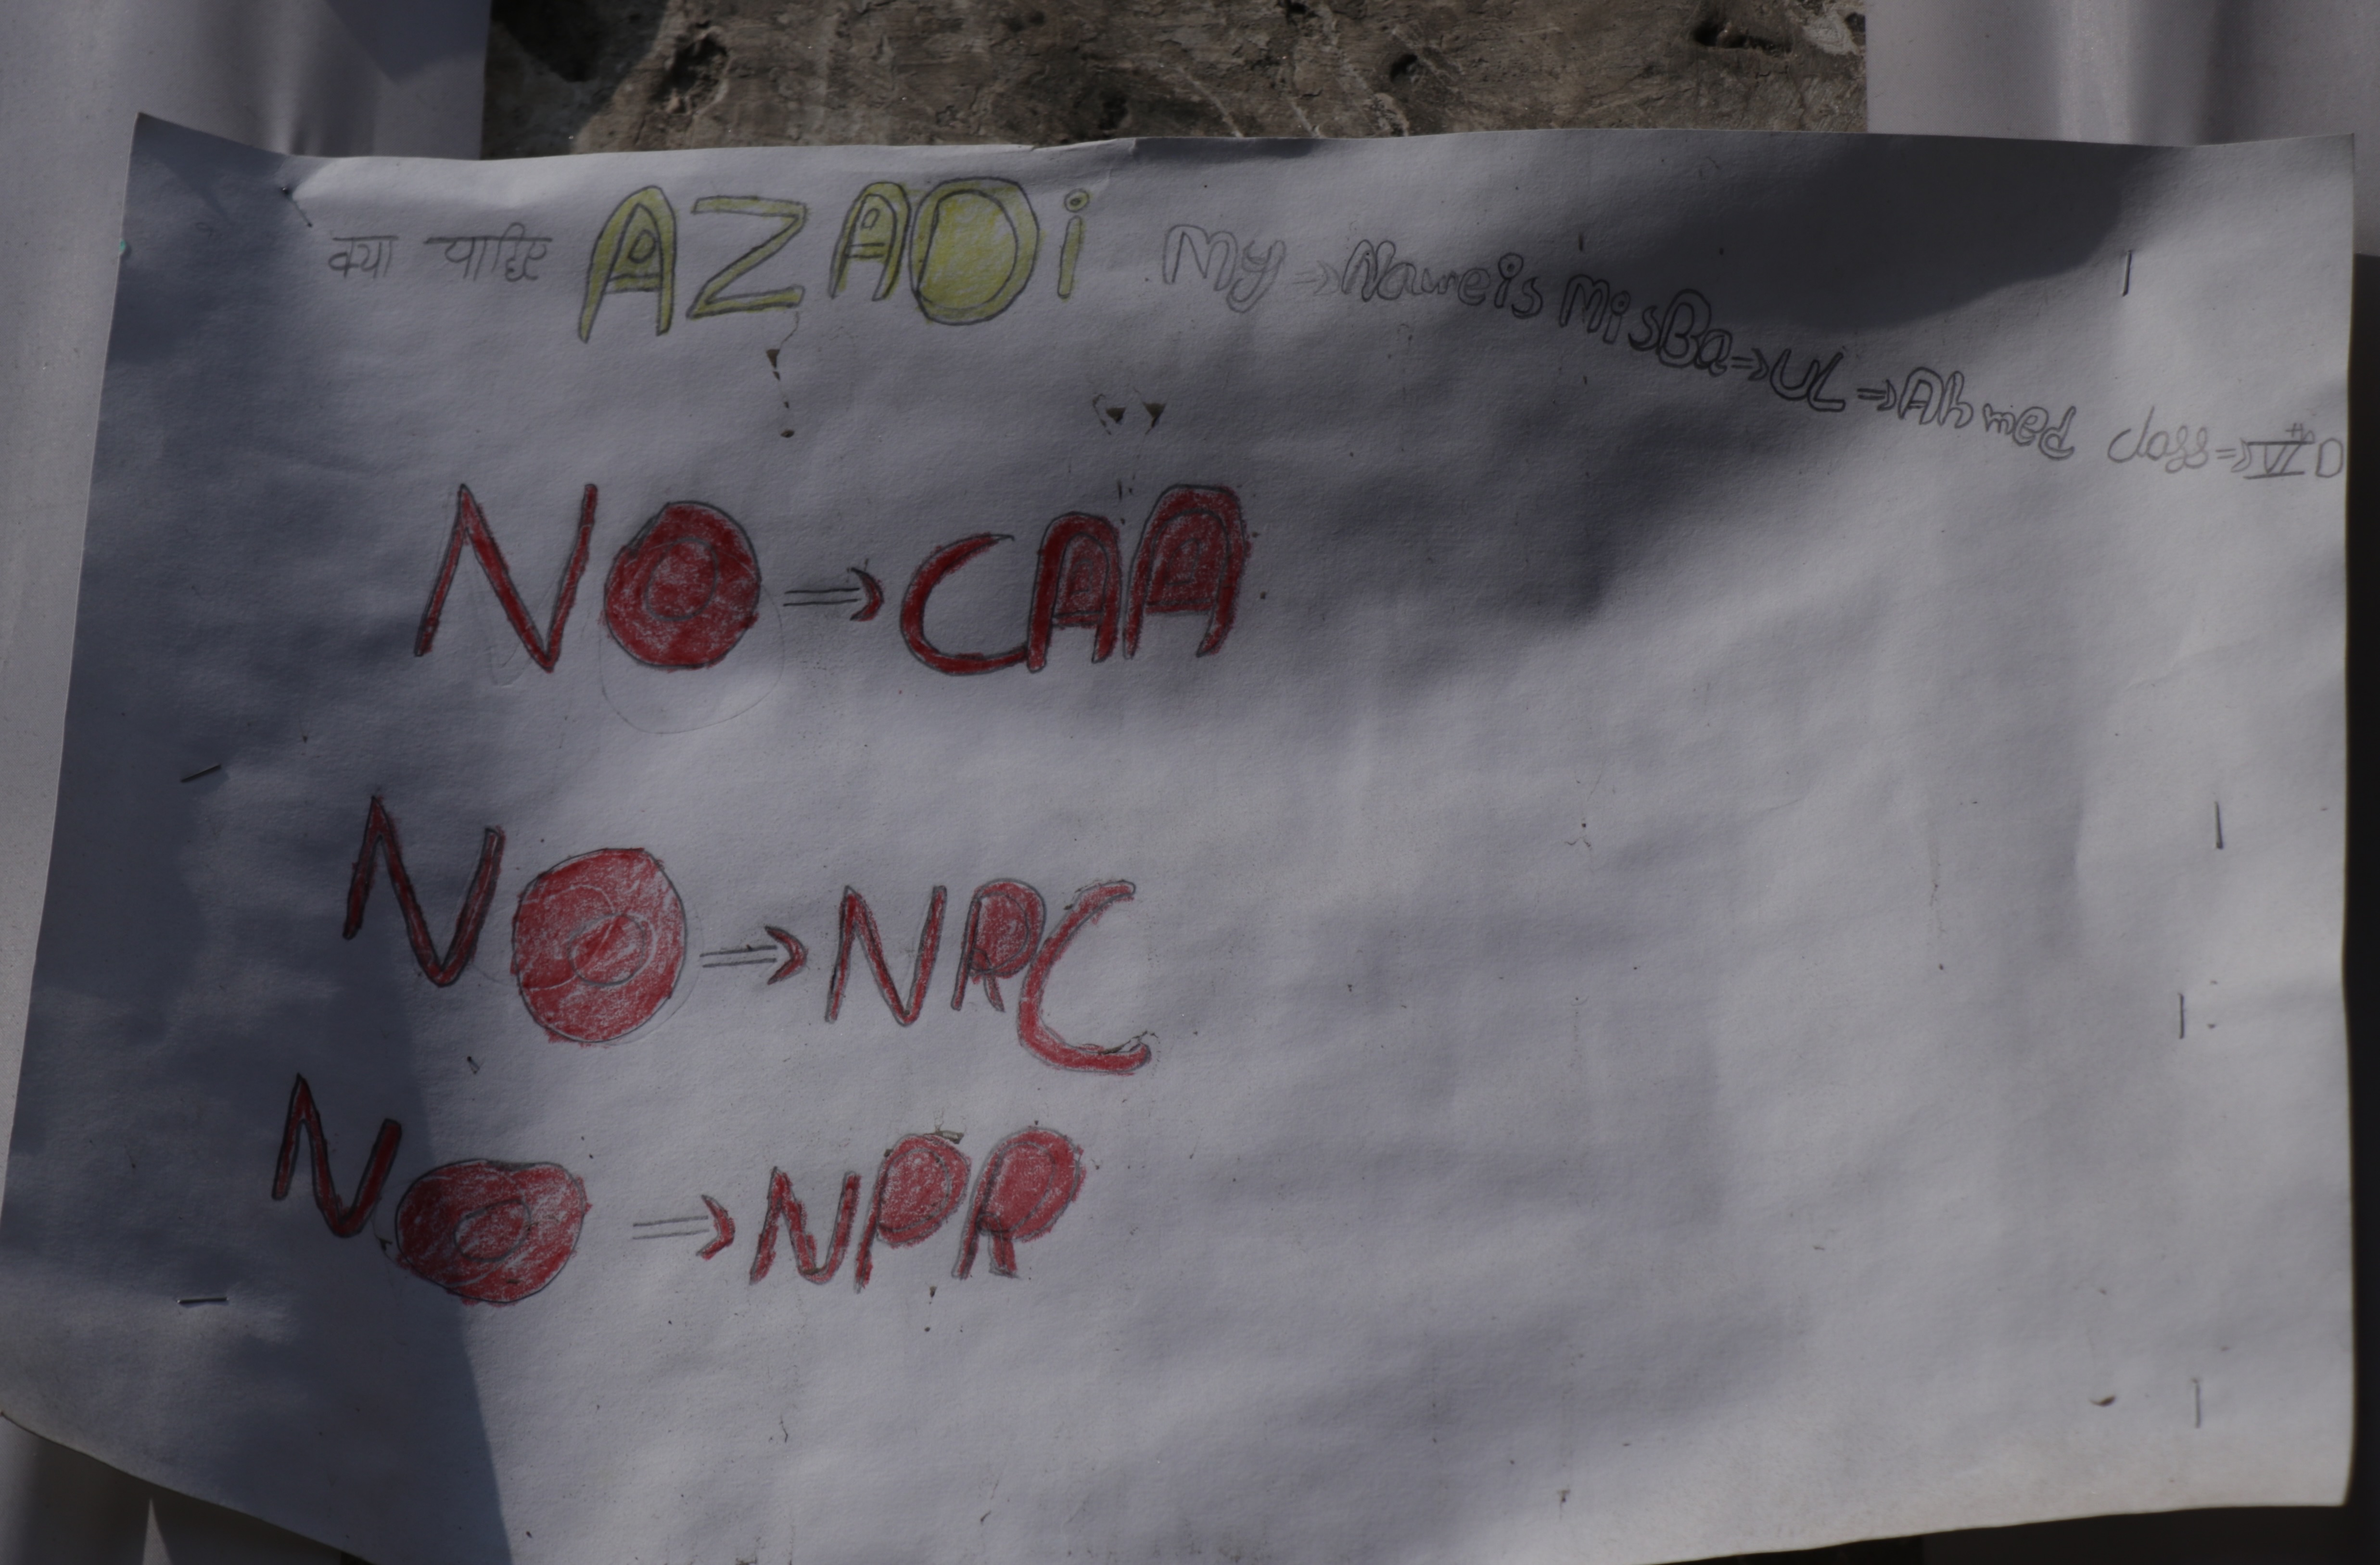 क्या चाहिए AZADi My ⇒ Name is MisBa ⇒ UL ⇒ Ahmed class ⇒ VIth D
NO ⇒ CAA
NO ⇒ NRC
NO ⇒ NPR